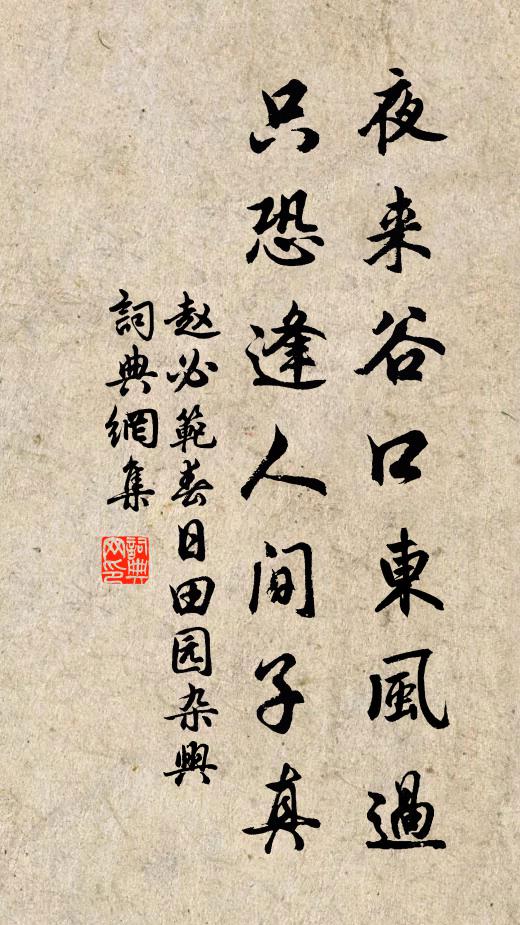 夜来谷口東風過
只恐逢人间子真
赵必範春日田园杂興
詞典網集
詞典网印